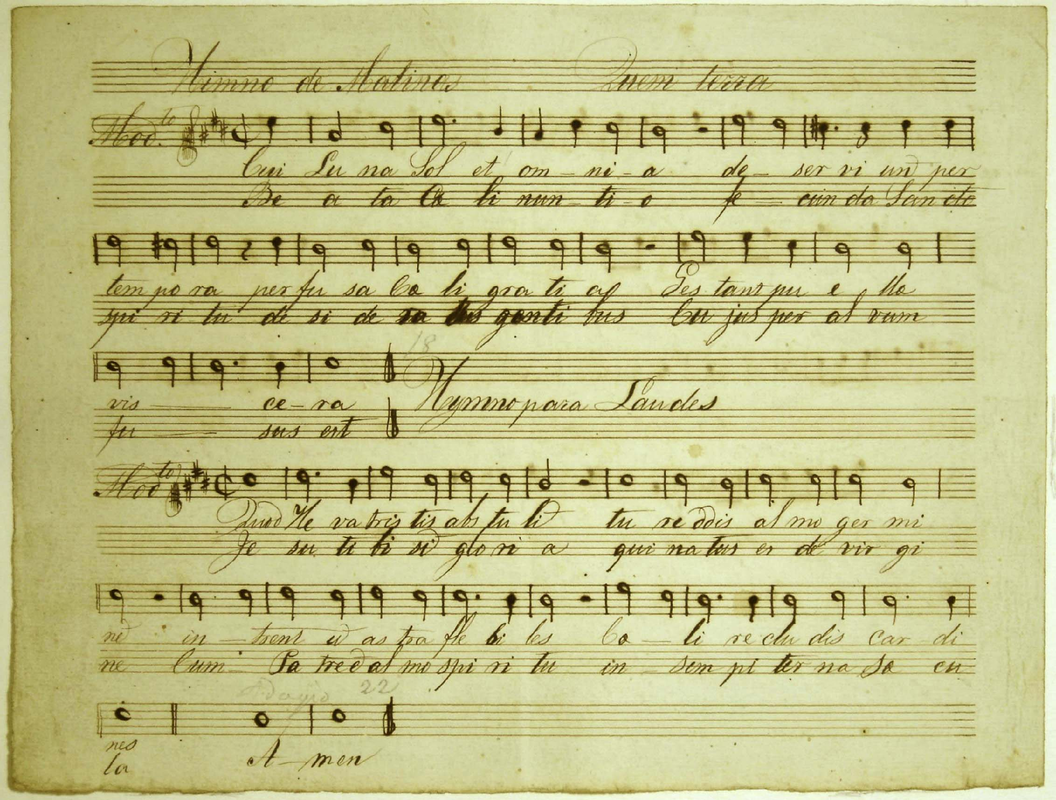 Himno de Matinas Quem terra
Mod.to
Cui Lu na Sol et om – ni – a de – ser vi unt per
Be a ta Cæ li nun – ti – o fe – cun da San cto
tem po ra per fu sa Cœ li gra ti a Ges tant pu e llæ
spi ri tu de si de ra tus genti bus Cu jus per al vum
18
vis ce – ra Hymno para Laudes
fu sus est
Mod.to
Quod He va tris tis abs tu lit tu re ddis al mo ger mi
Je su ti bi sit glo ri a qui na tus es de vir gi
ne in – trent ut as tra fle bi les Cœ – li re clu dis car di
ne Cum Pa tre et al mo spi ri tu in sem pi ter na sæ cu
22
nes
la A – men